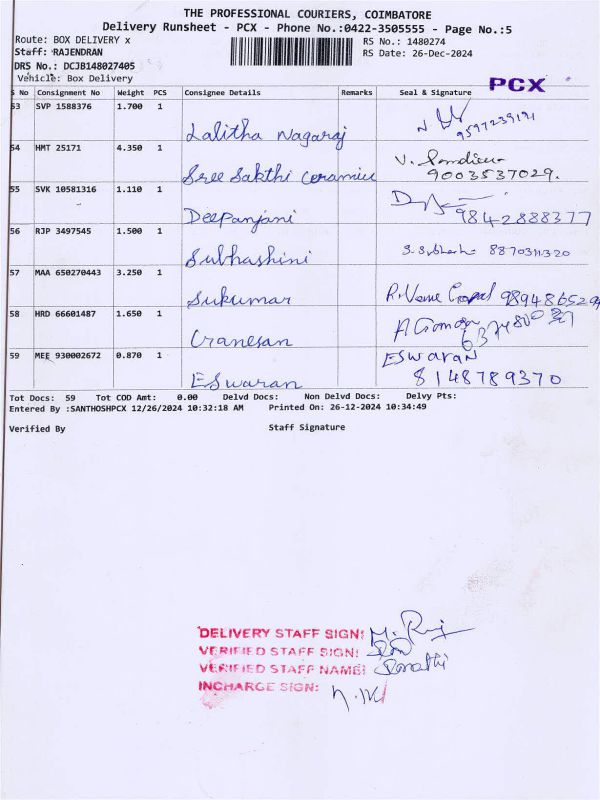 THE PROFESSIONAL COURIERS, COIMBATORE
Delivery Runsheet - PCX - Phone No.:0422-3505555 - Page No.:5
Route: BOX DELIVERY x RS No.: 1480274
Staff: RAJENDRAN RS Date: 26-Dec-2024
DRS No.: DCJB148027405
Vehicle: Box Delivery PCX
S No Consignment No Weight PCS Consignee Details Remarks Seal & Signature
53 SVP 1588376 1.700 1
Lalitha Nagaraj 9597239191
54 HMT 25171 4.350 1
Sree Sakthi Ceramics 9003537029.
55 SVK 10581316 1.110 1
Deepanjani 9842888377
56 RJP 3497545 1.500 1
Subhashini S. Subhashi 8870311320
57 MAA 650270443 3.250 1
Sukumar R. Venu Gopal 9894865294
58 HRD 66601487 1.650 1
Granesan
59 MEE 930002672 0.870 1 ESWARAN
Eswaran 8148789370
Tot Docs: 59 Tot COD Amt: 0.00 Delvd Docs: Non Delvd Docs: Delvy Pts:
Entered By :SANTHOSHPCX 12/26/2024 10:32:18 AM Printed On: 26-12-2024 10:34:49
Verified By Staff Signature
DELIVERY STAFF SIGN:
VERIFIED STAFF SIGN:
VERIFIED STAFF NAME:
INCHARGE SIGN: